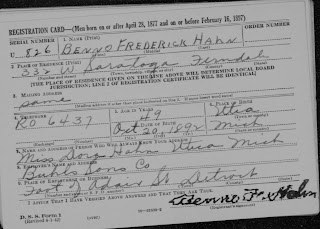 REGISTRATION CARD—(Men born on or after April 28, 1877 and on or before February 16, 1897)
SERIAL NUMBER 1. NAME (Print) ORDER NUMBER
U 826 BENNO FREDERICK HAHN
2. PLACE OF RESIDENCE (Print)
332 W. Saratoga Ferndale
[THE PLACE OF RESIDENCE GIVEN ON THE LINE ABOVE WILL DETERMINE LOCAL BOARD
JURISDICTION; LINE 2 OF REGISTRATION CERTIFICATE WILL BE IDENTICAL]
3. MAILING ADDRESS
same
4. TELEPHONE 5. AGE IN YEARS 6. PLACE OF BIRTH
RO 6437 49 Utica
DATE OF BIRTH
Oct 20, 1892 Mich
7. NAME AND ADDRESS OF PERSON WHO WILL ALWAYS KNOW YOUR ADDRESS
Miss Dora Hahn Utica Mich
8. EMPLOYER'S NAME AND ADDRESS
Buhl Sons Co
9. PLACE OF EMPLOYMENT OR BUSINESS
Foot of Adair St Detroit
I AFFIRM THAT I HAVE VERIFIED ABOVE ANSWERS AND THAT THEY ARE TRUE.
D. S. S. Form 1
Benno F. Hahn